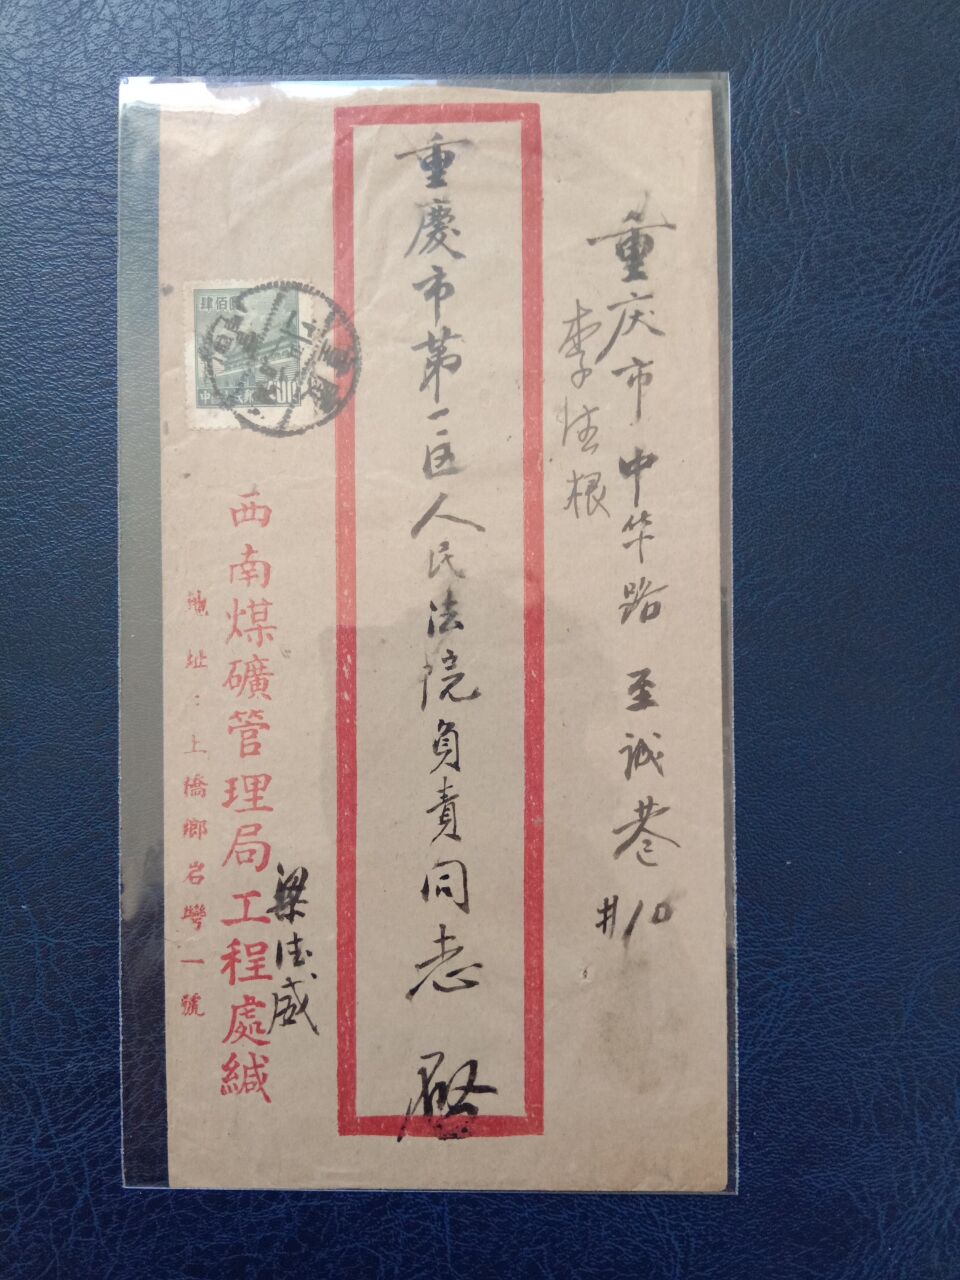 重庆市中华路至诚巷#10
李
根
重慶市第一区人民法院負責同志 啓
梁
西南煤礦管理局工程處緘
地址:上橋鄉岩彎一號
肆佰圓